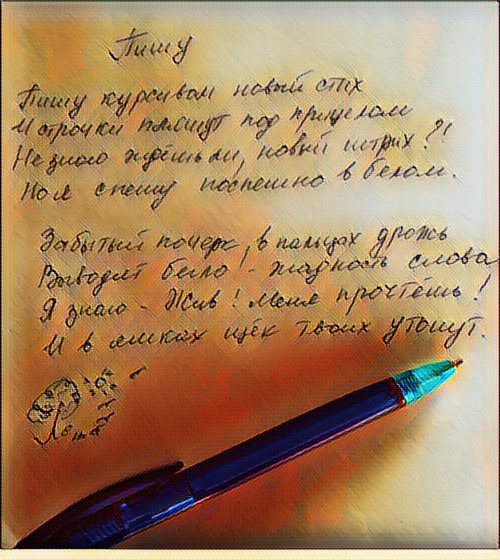 Пишу
Пишу курсивом новый стих
И строчки пляшут под прицелом
Не знаю ждёшь ли, новый штрих?!
Но я спешу поспешно в белом.
Забытый почерк, в пальцах дрожь
Выводит бегло! - жадность слова
Я знаю - Жив! меня прочтёшь!
И в ямках щёк твоих утонут.